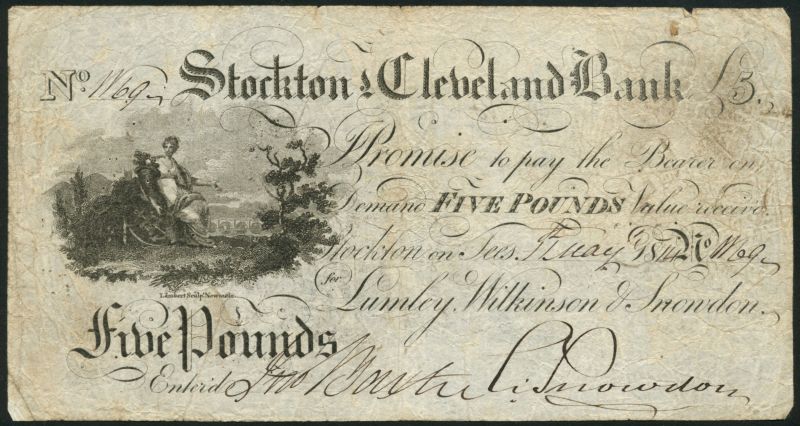 No. 1169 Stockton & Cleveland Bank £5.
I Promise to pay the Bearer on
Demand FIVE POUNDS Value receiv
Stockton on Tees. 1814 No. 1169
for Lumley, Wilkinson & Snowdon.
Lambert Sculpt. Newcastle
Five Pounds
Enter'd Jno C. Snowdon